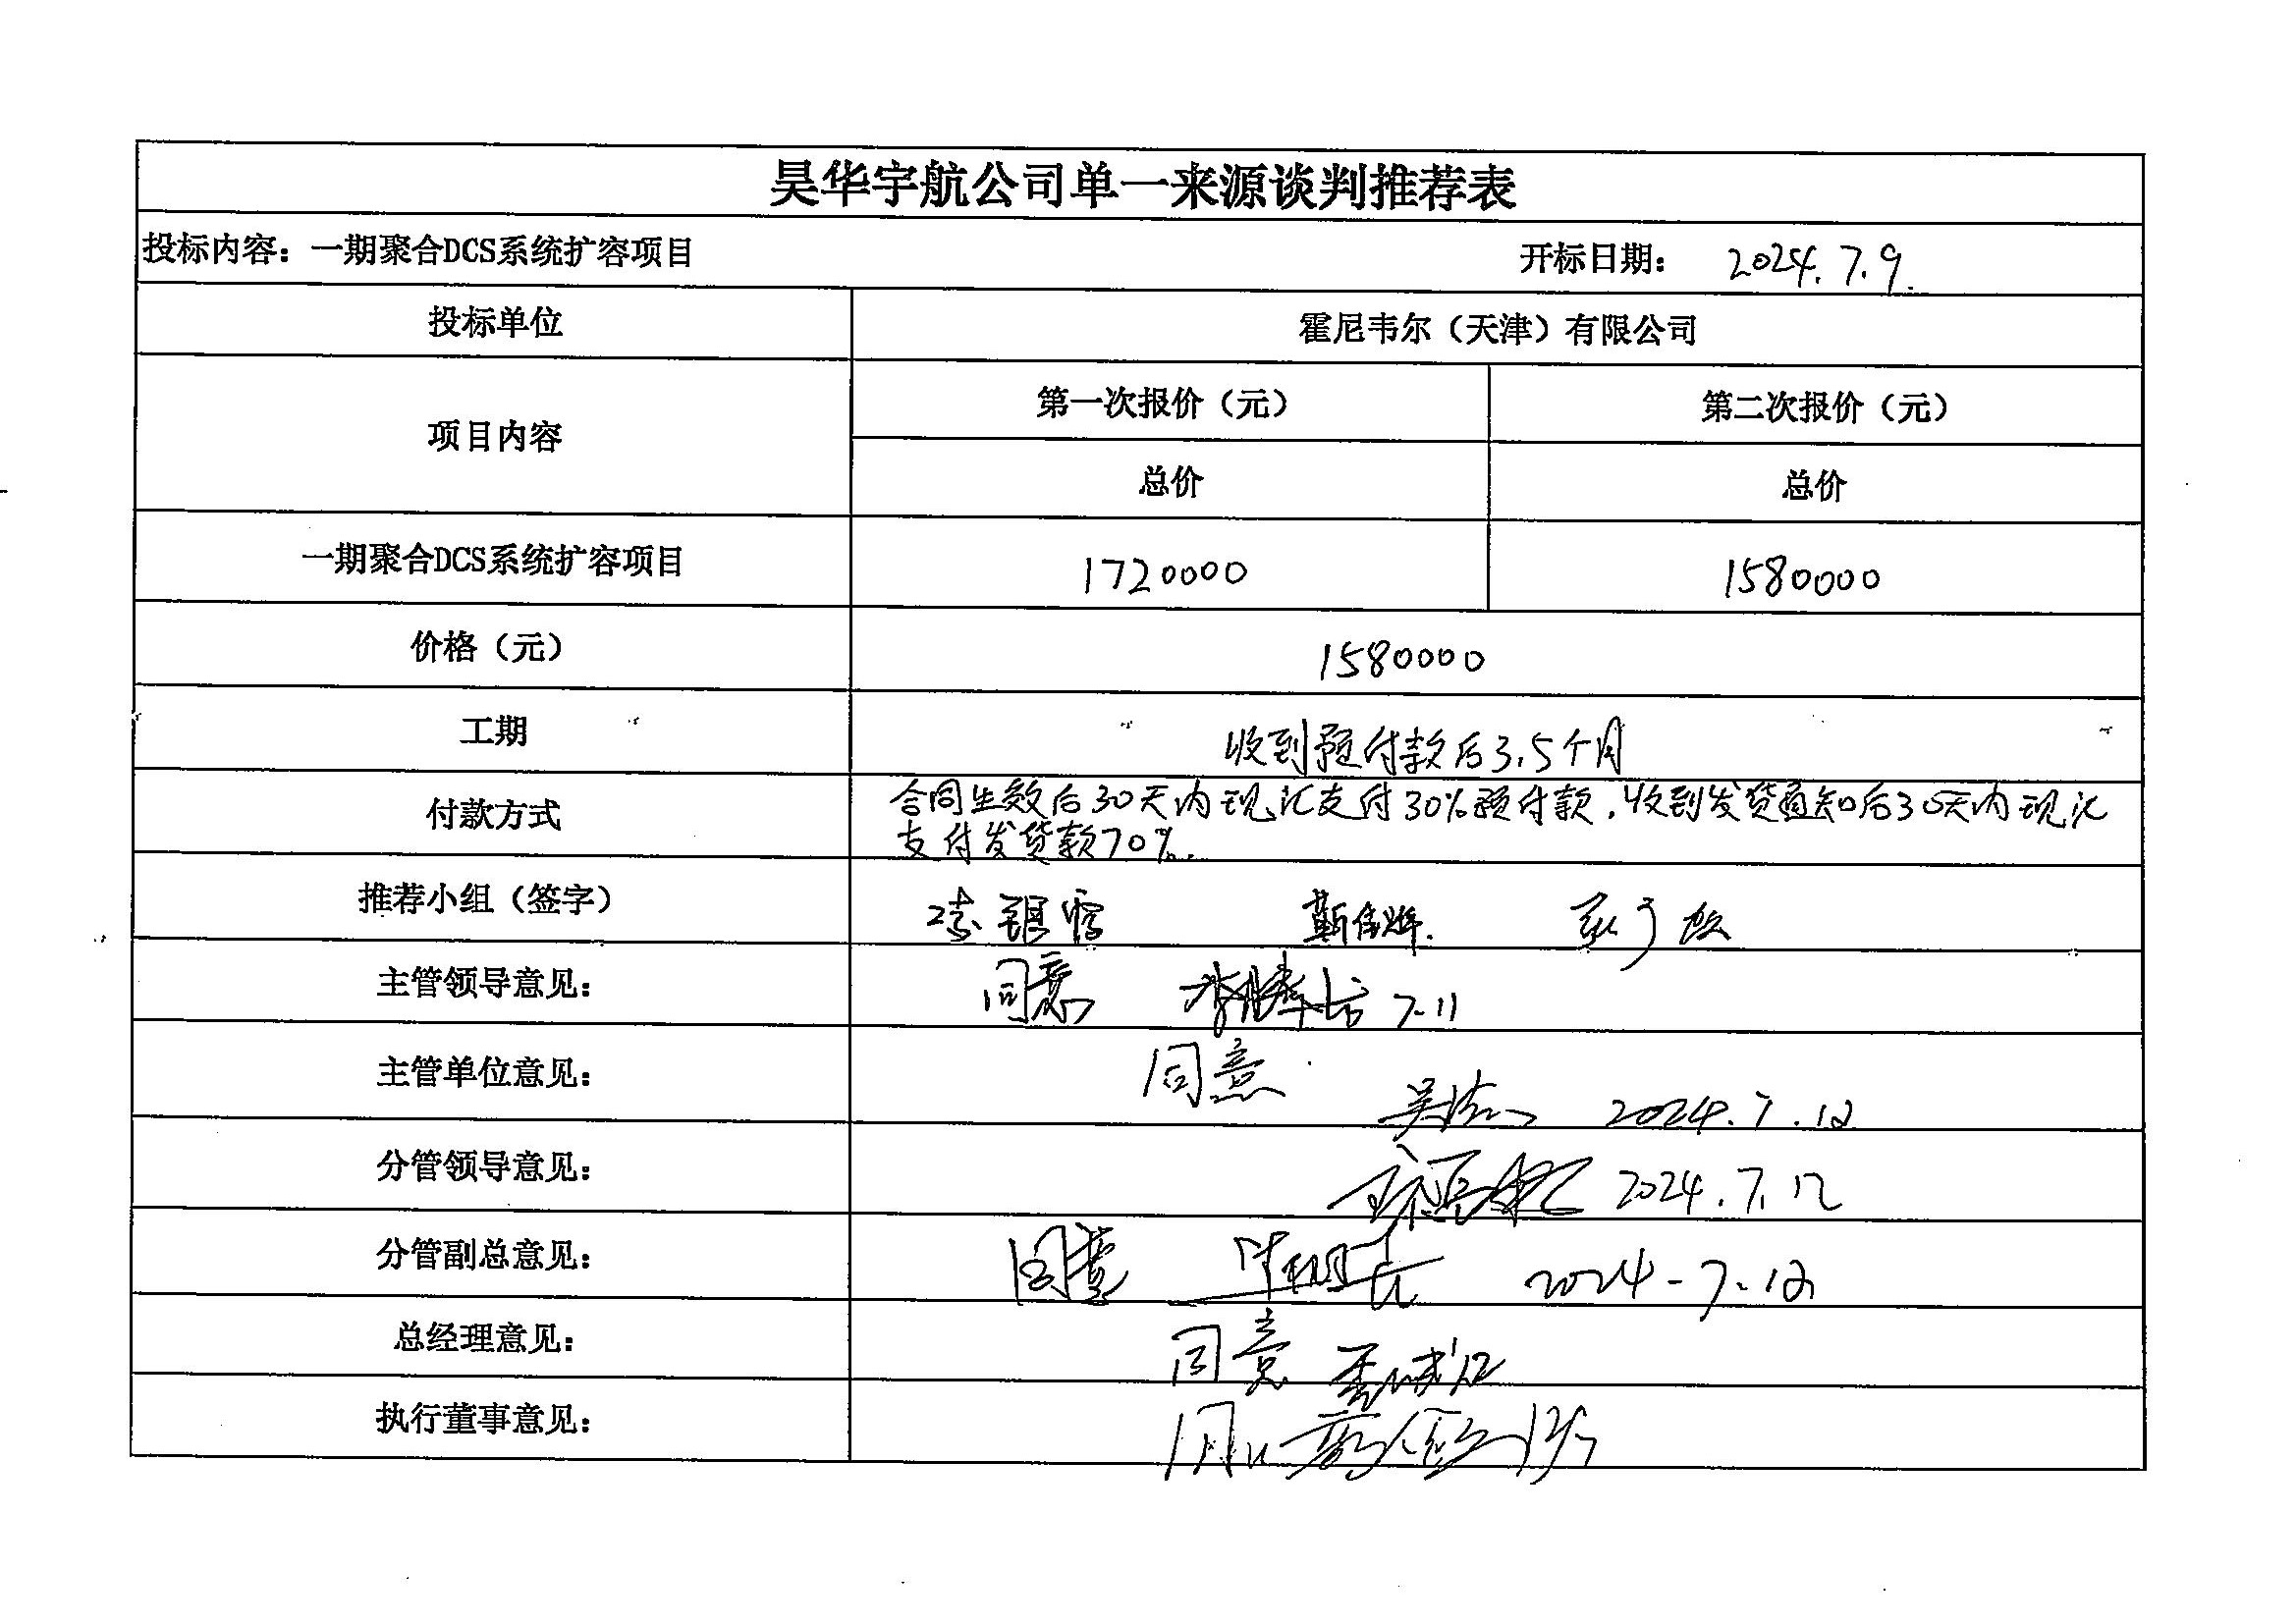 昊华宇航公司单一来源谈判推荐表
投标内容：一期聚合DCS系统扩容项目 开标日期： 2024.7.9.
投标单位 霍尼韦尔（天津）有限公司
项目内容 第一次报价（元） 第二次报价（元）
总价 总价
一期聚合DCS系统扩容项目 1720000 1580000
价格（元） 1580000
工期 收到预付款后3.5个月
付款方式 合同生效后30天内现汇支付30%预付款，收到发货通知后30天内现汇
支付发货款70%.
推荐小组（签字）
主管领导意见： 同意 7.11
主管单位意见： 同意
2024.7.12
分管领导意见： 2024.7.12
分管副总意见： 同意 2024-7.12
总经理意见： 同意
执行董事意见：